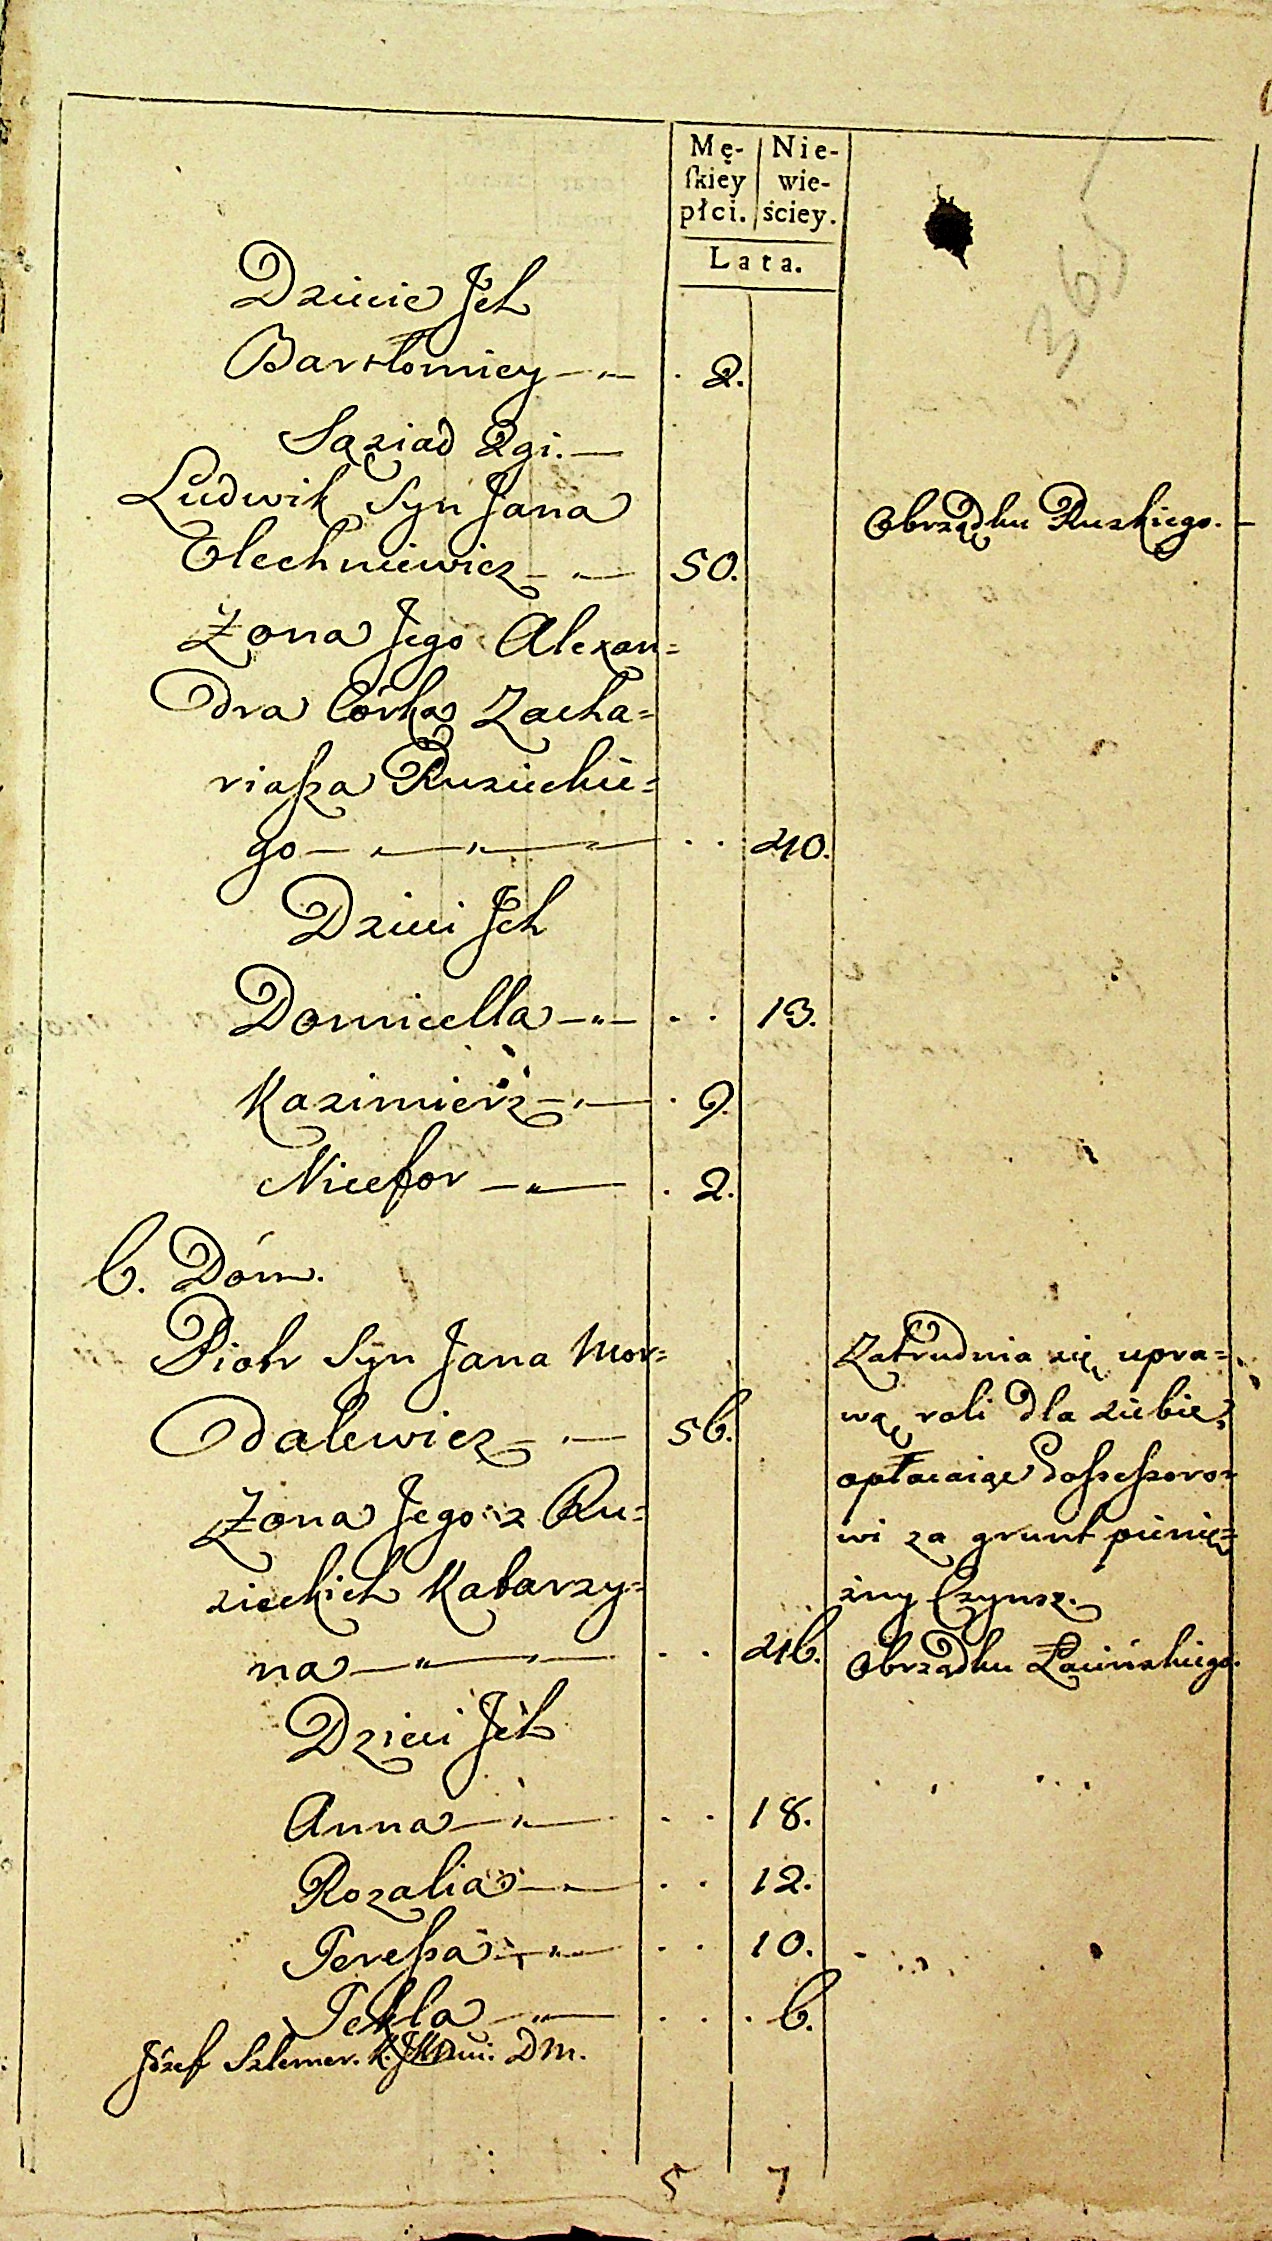 Mę-
ſkiey
płci.
Nie-
wie-
ściey.
Lata.
365
Dziecie Jch
Bartłomiey — 2.
Sąziad 2gi. —
Ludwik Syn Jana
Olechniewicz — 50.
Obrządku Ruskiego. —
Zona Jego Alexan=
dra Córka Zacha=
riaſza Ruzieckie=
go — 40.
Dzieci Jch
Domicella — 13.
Kazimierz — 9.
Nicefor — 2.
6. Dóm.
Piotr Syn Jana Mor=
dalewicz — 56.
Zona Jego z Ru=
zieckich Katarzy=
na — 46.
Zatrudnia się upra=
wą roli dla siebie,
opłacaiąc Poſseſsoro=
wi za grunt pienię=
żny Czynsz.
Obrządku Łacińskiego.
Dzieci Jch
Anna — 18.
Rozalia — 12.
Tereſsa — 10.
Tekla — 6.
Józef Szlemer. DM.
5 7